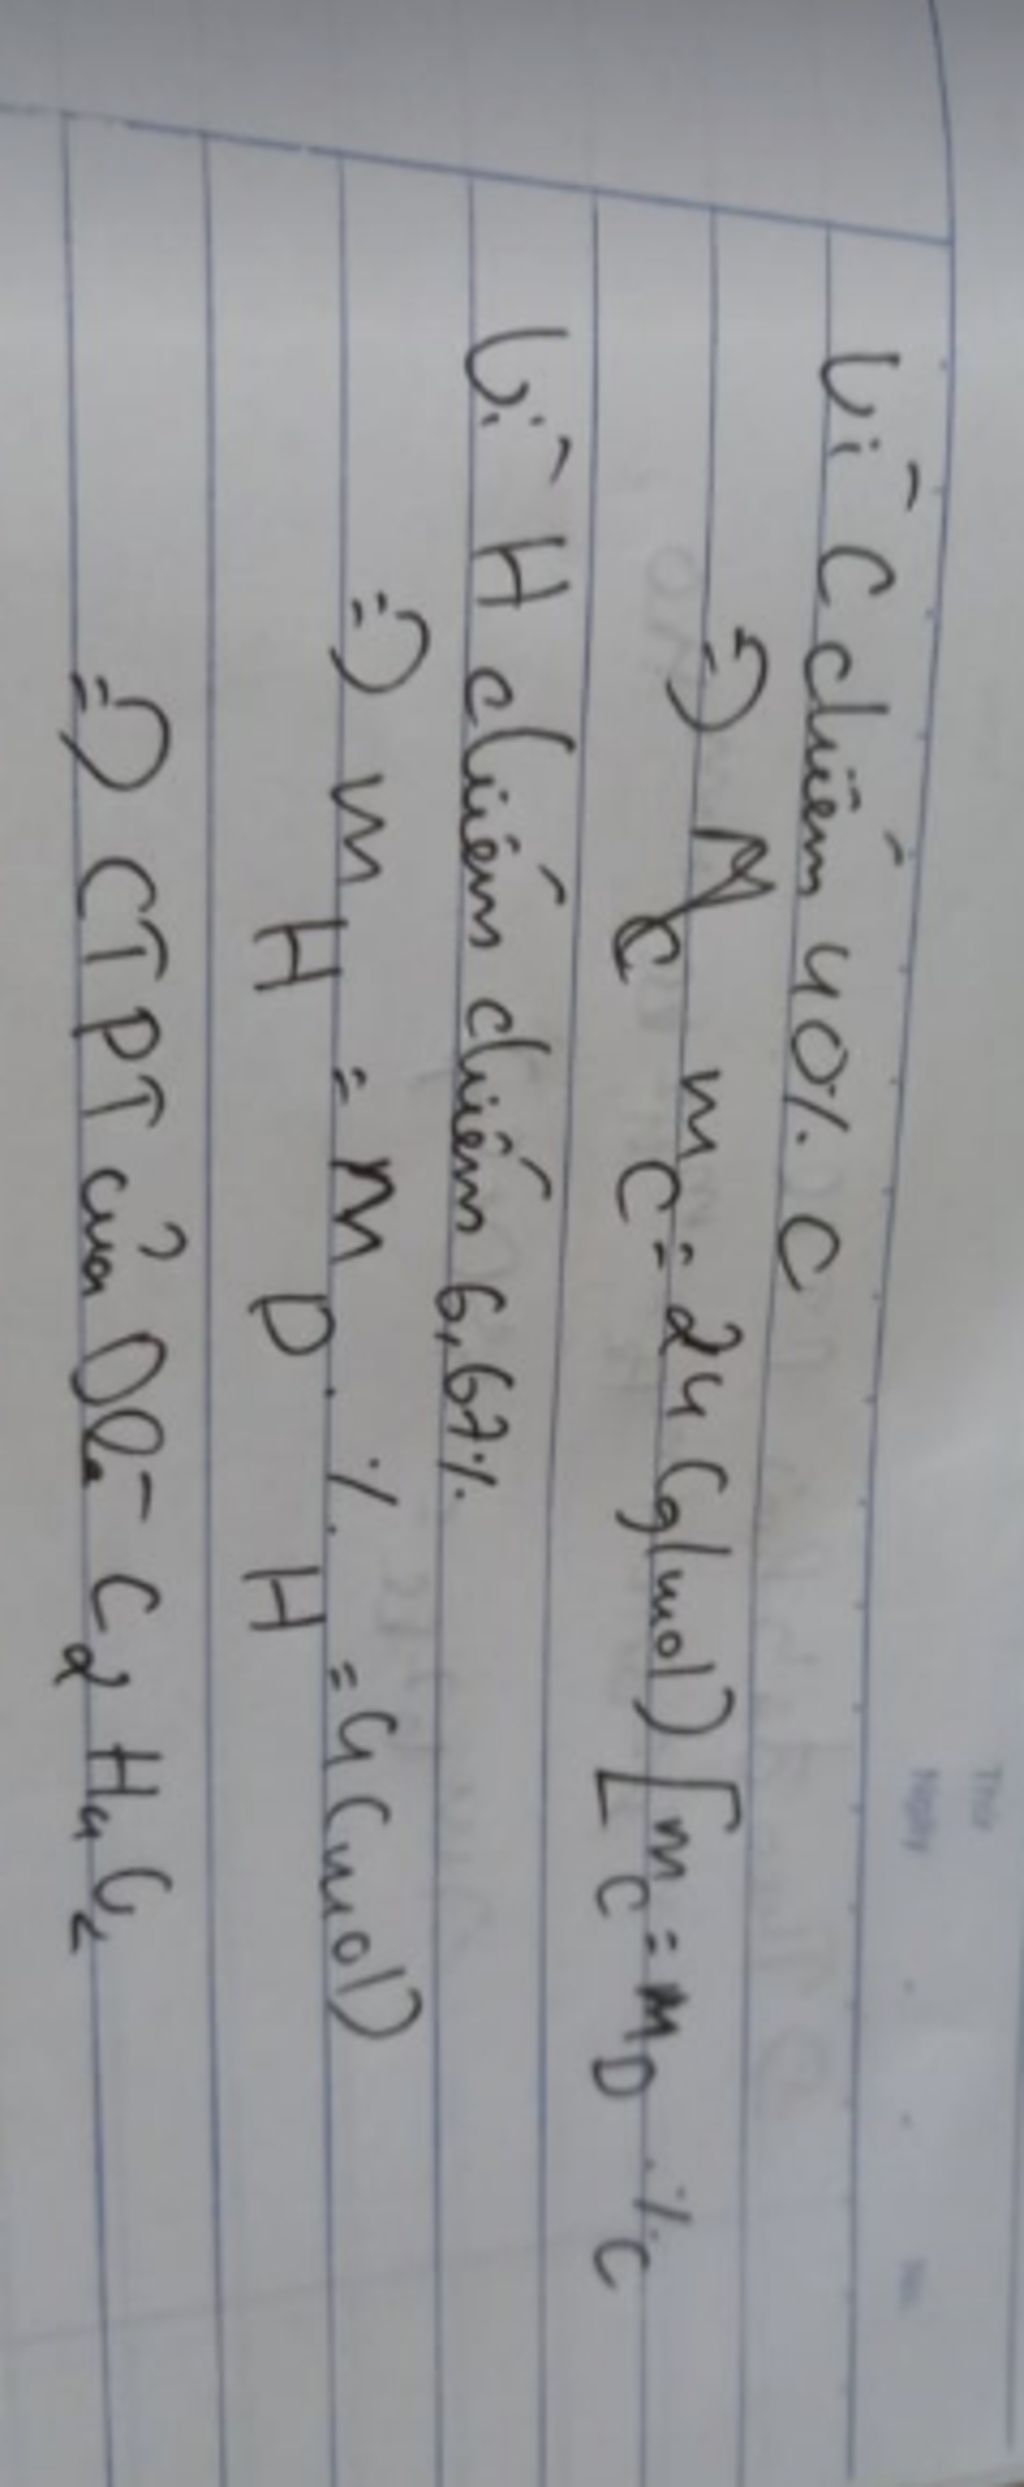 Thứ
Ngày No.
Vì C chiếm 40% C
=> M C m C = 24 (g/mol) [m C = M D . % C
Vì H chiếm chiếm 6,67%
=> m H = M D . % H = 4 (mol)
=> CTPT của D là C2H4O2